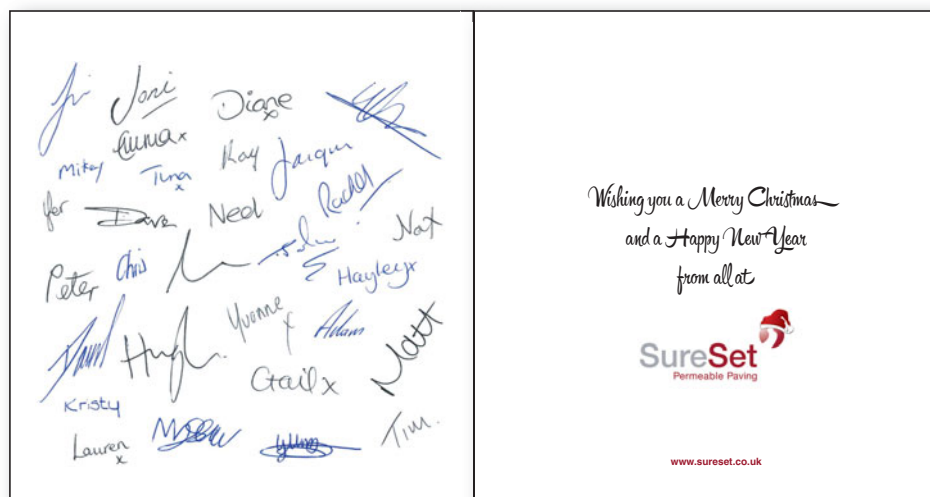 Joni Diane x
Emma x
Mikey Tina x Kay Jacqui
Rachel
Dave Neil
Nat
Peter Chris
Hayley x
Yvonne x Adam
David Hugh
Matt
Gail x
Kristy
Lauren x
Tim.
Wishing you a Merry Christmas
and a Happy New Year
from all at
SureSet
Permeable Paving
www.sureset.co.uk